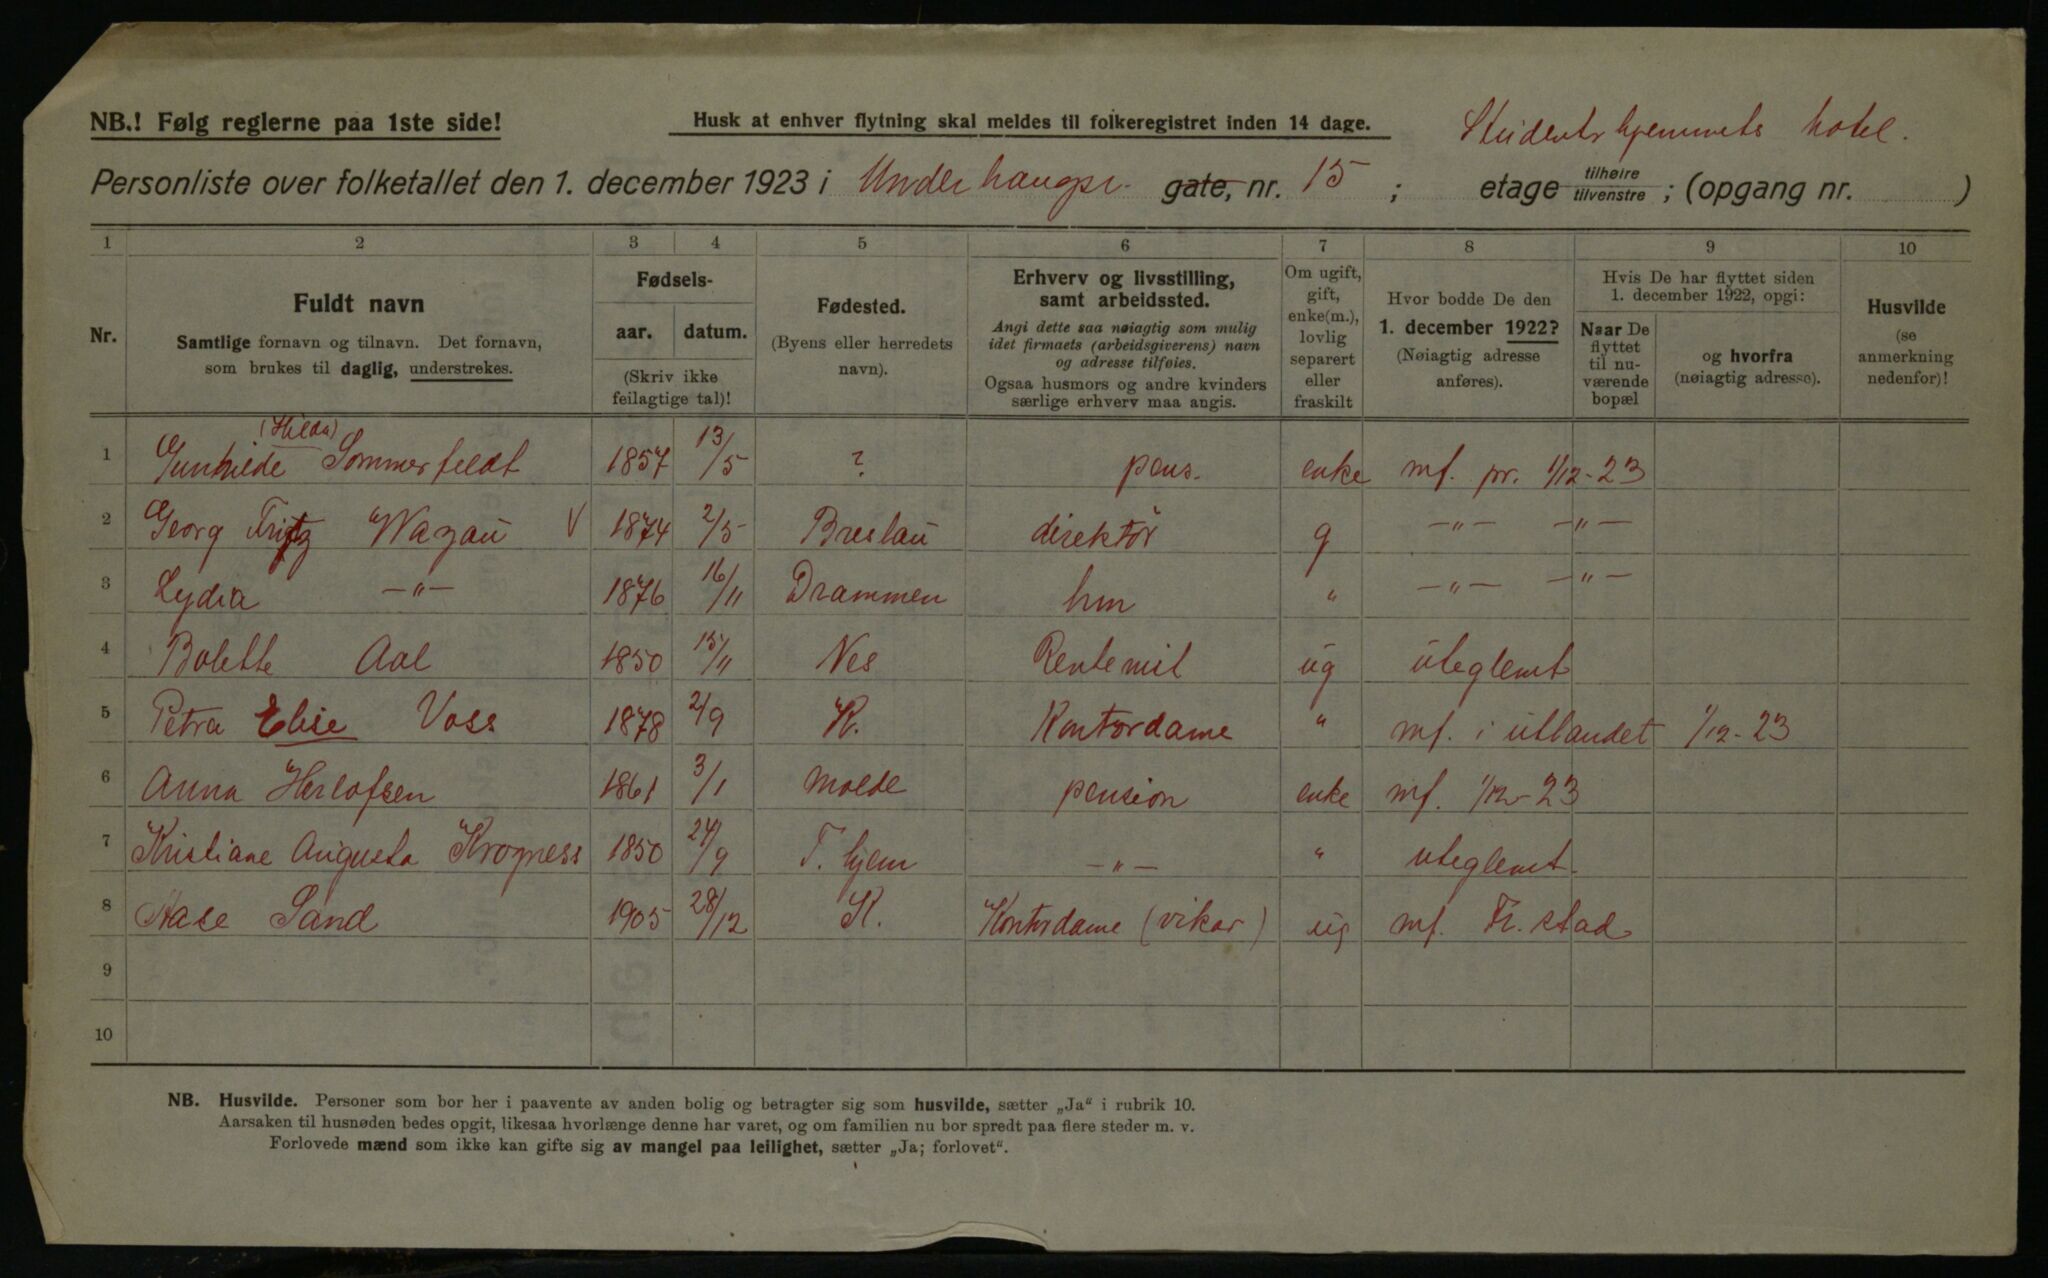 NB.! Følg reglerne paa 1ste side!
Husk at enhver flytning skal meldes til folkeregistret inden 14 dage.
Studenterhjemmets hotel.
Personliste over folketallet den 1. december 1923 i Underhaugsv. gate, nr. 15 ; etage tilhøire tilvenstre ; (opgang nr. )
1 2 3 4 5 6 7 8 9 10
Nr.
Fuldt navn
Samtlige fornavn og tilnavn. Det fornavn,
som brukes til daglig, understrekes.
Fødsels-
aar. datum.
(Skriv ikke
feilagtige tal)!
Fødested.
(Byens eller herredets
navn).
Erhverv og livsstilling,
samt arbeidssted.
Angi dette saa nøiagtig som mulig
idet firmaets (arbeidsgiverens) navn
og adresse tilføies.
Ogsaa husmors og andre kvinders
særlige erhverv maa angis.
Om ugift,
gift,
enke(m.),
lovlig
separert
eller
fraskilt
Hvor bodde De den
1. december 1922?
(Nøiagtig adresse
anføres).
Hvis De har flyttet siden
1. december 1922, opgi:
Naar De
flyttet
til nu-
værende
bopæl
og hvorfra
(nøiagtig adresse).
Husvilde
(se
anmerkning
nedenfor)!
(Hilda)
1 Gunhilde Sommerfeldt 1857 13/5 ? pens. enke mf. pr. 1/12-23
2 Georg Fritz Wazau V 1874 2/5 Breslau direktör g —„— —„—
3 Lydia —„— 1876 16/11 Drammen hm „ —„— —„—
4 Bolette Aal 1850 15/11 Nes Rentenist ug uteglemt
5 Petra Elise Voss 1878 2/9 K. Kontordame „ mf. i utlandet 1/12-23
6 Anna Herlofsen 1861 3/1 Molde pension enke mf. 1/12-23
7 Kristiane Augusta Krogness 1850 24/9 T. hjem —„— „ uteglemt.
8 Aase Sand 1905 28/12 K. Kontordame (vikar) ug mf. Fr. stad
9
10
NB. Husvilde. Personer som bor her i paavente av anden bolig og betragter sig som husvilde, sætter „Ja“ i rubrik 10.
Aarsaken til husnøden bedes opgit, likesaa hvorlænge denne har varet, og om familien nu bor spredt paa flere steder m. v.
Forlovede mænd som ikke kan gifte sig av mangel paa leilighet, sætter „Ja; forlovet“.